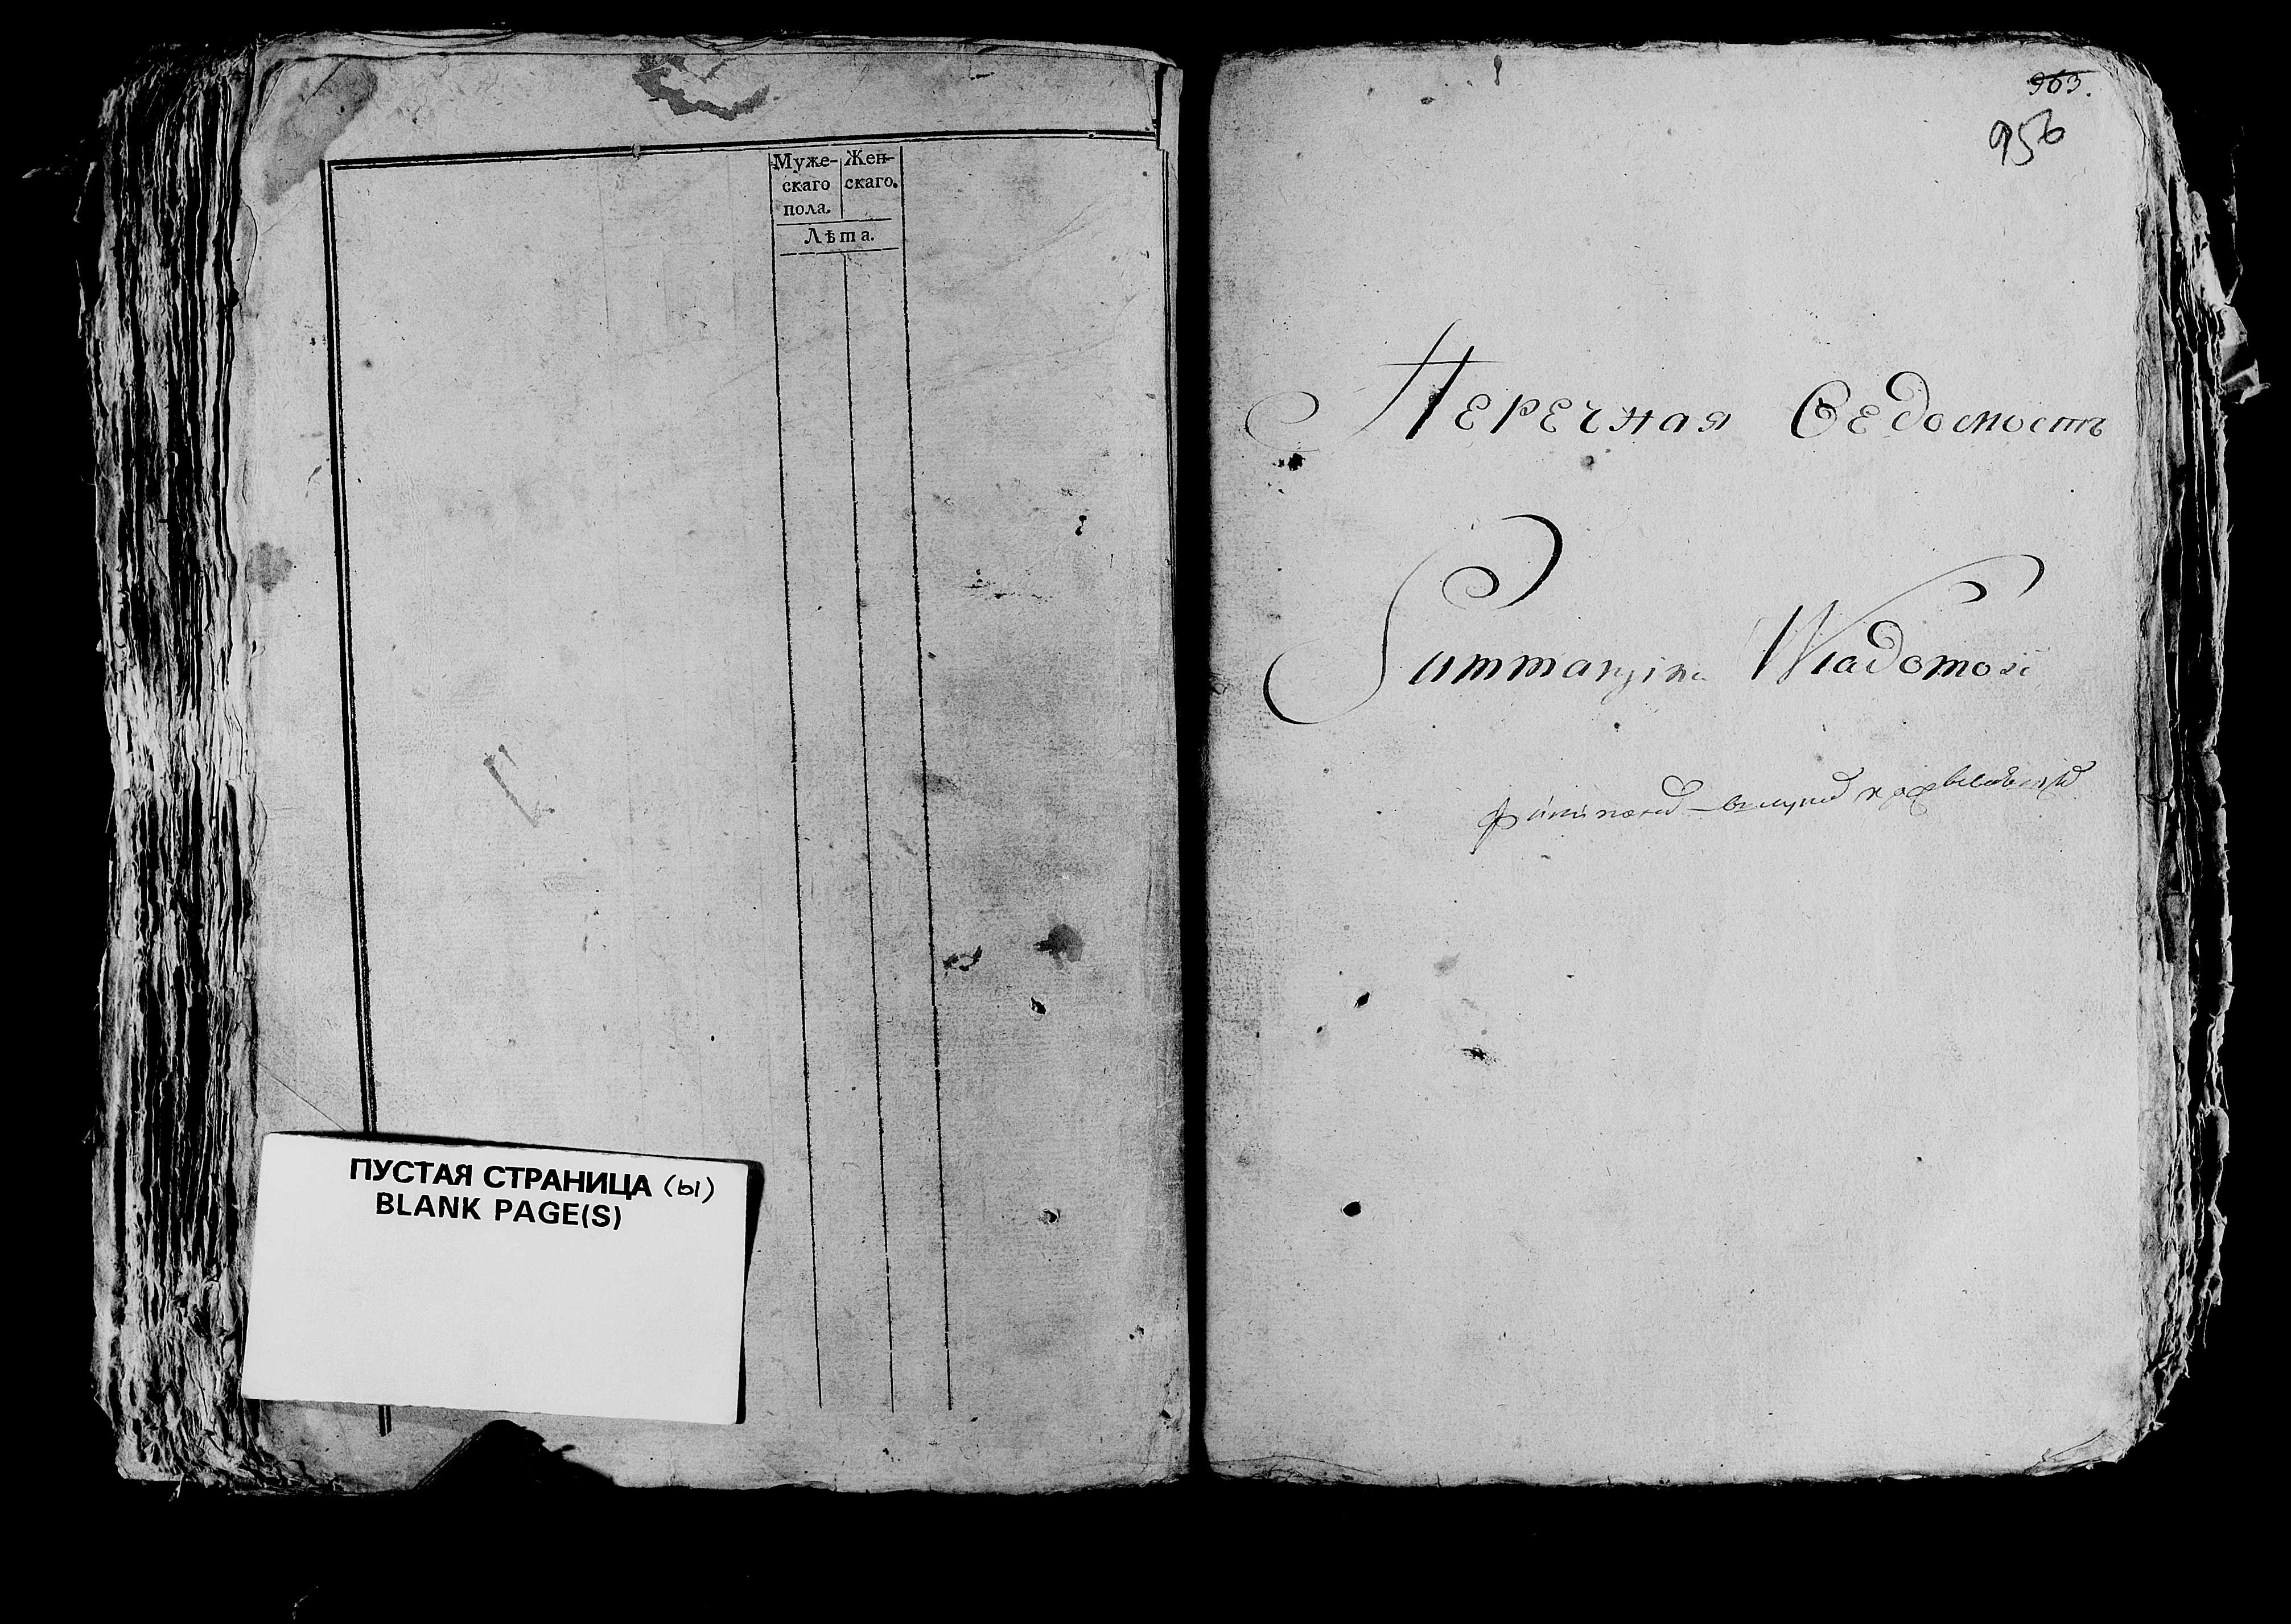 Муже- Жен-
скаго скаго.
пола.
Лѣта.
ПУСТАЯ СТРАНИЦА (ы)
BLANK PAGE(S)
963.
956
Перечная Ведомость
Summaryina Wiadomość